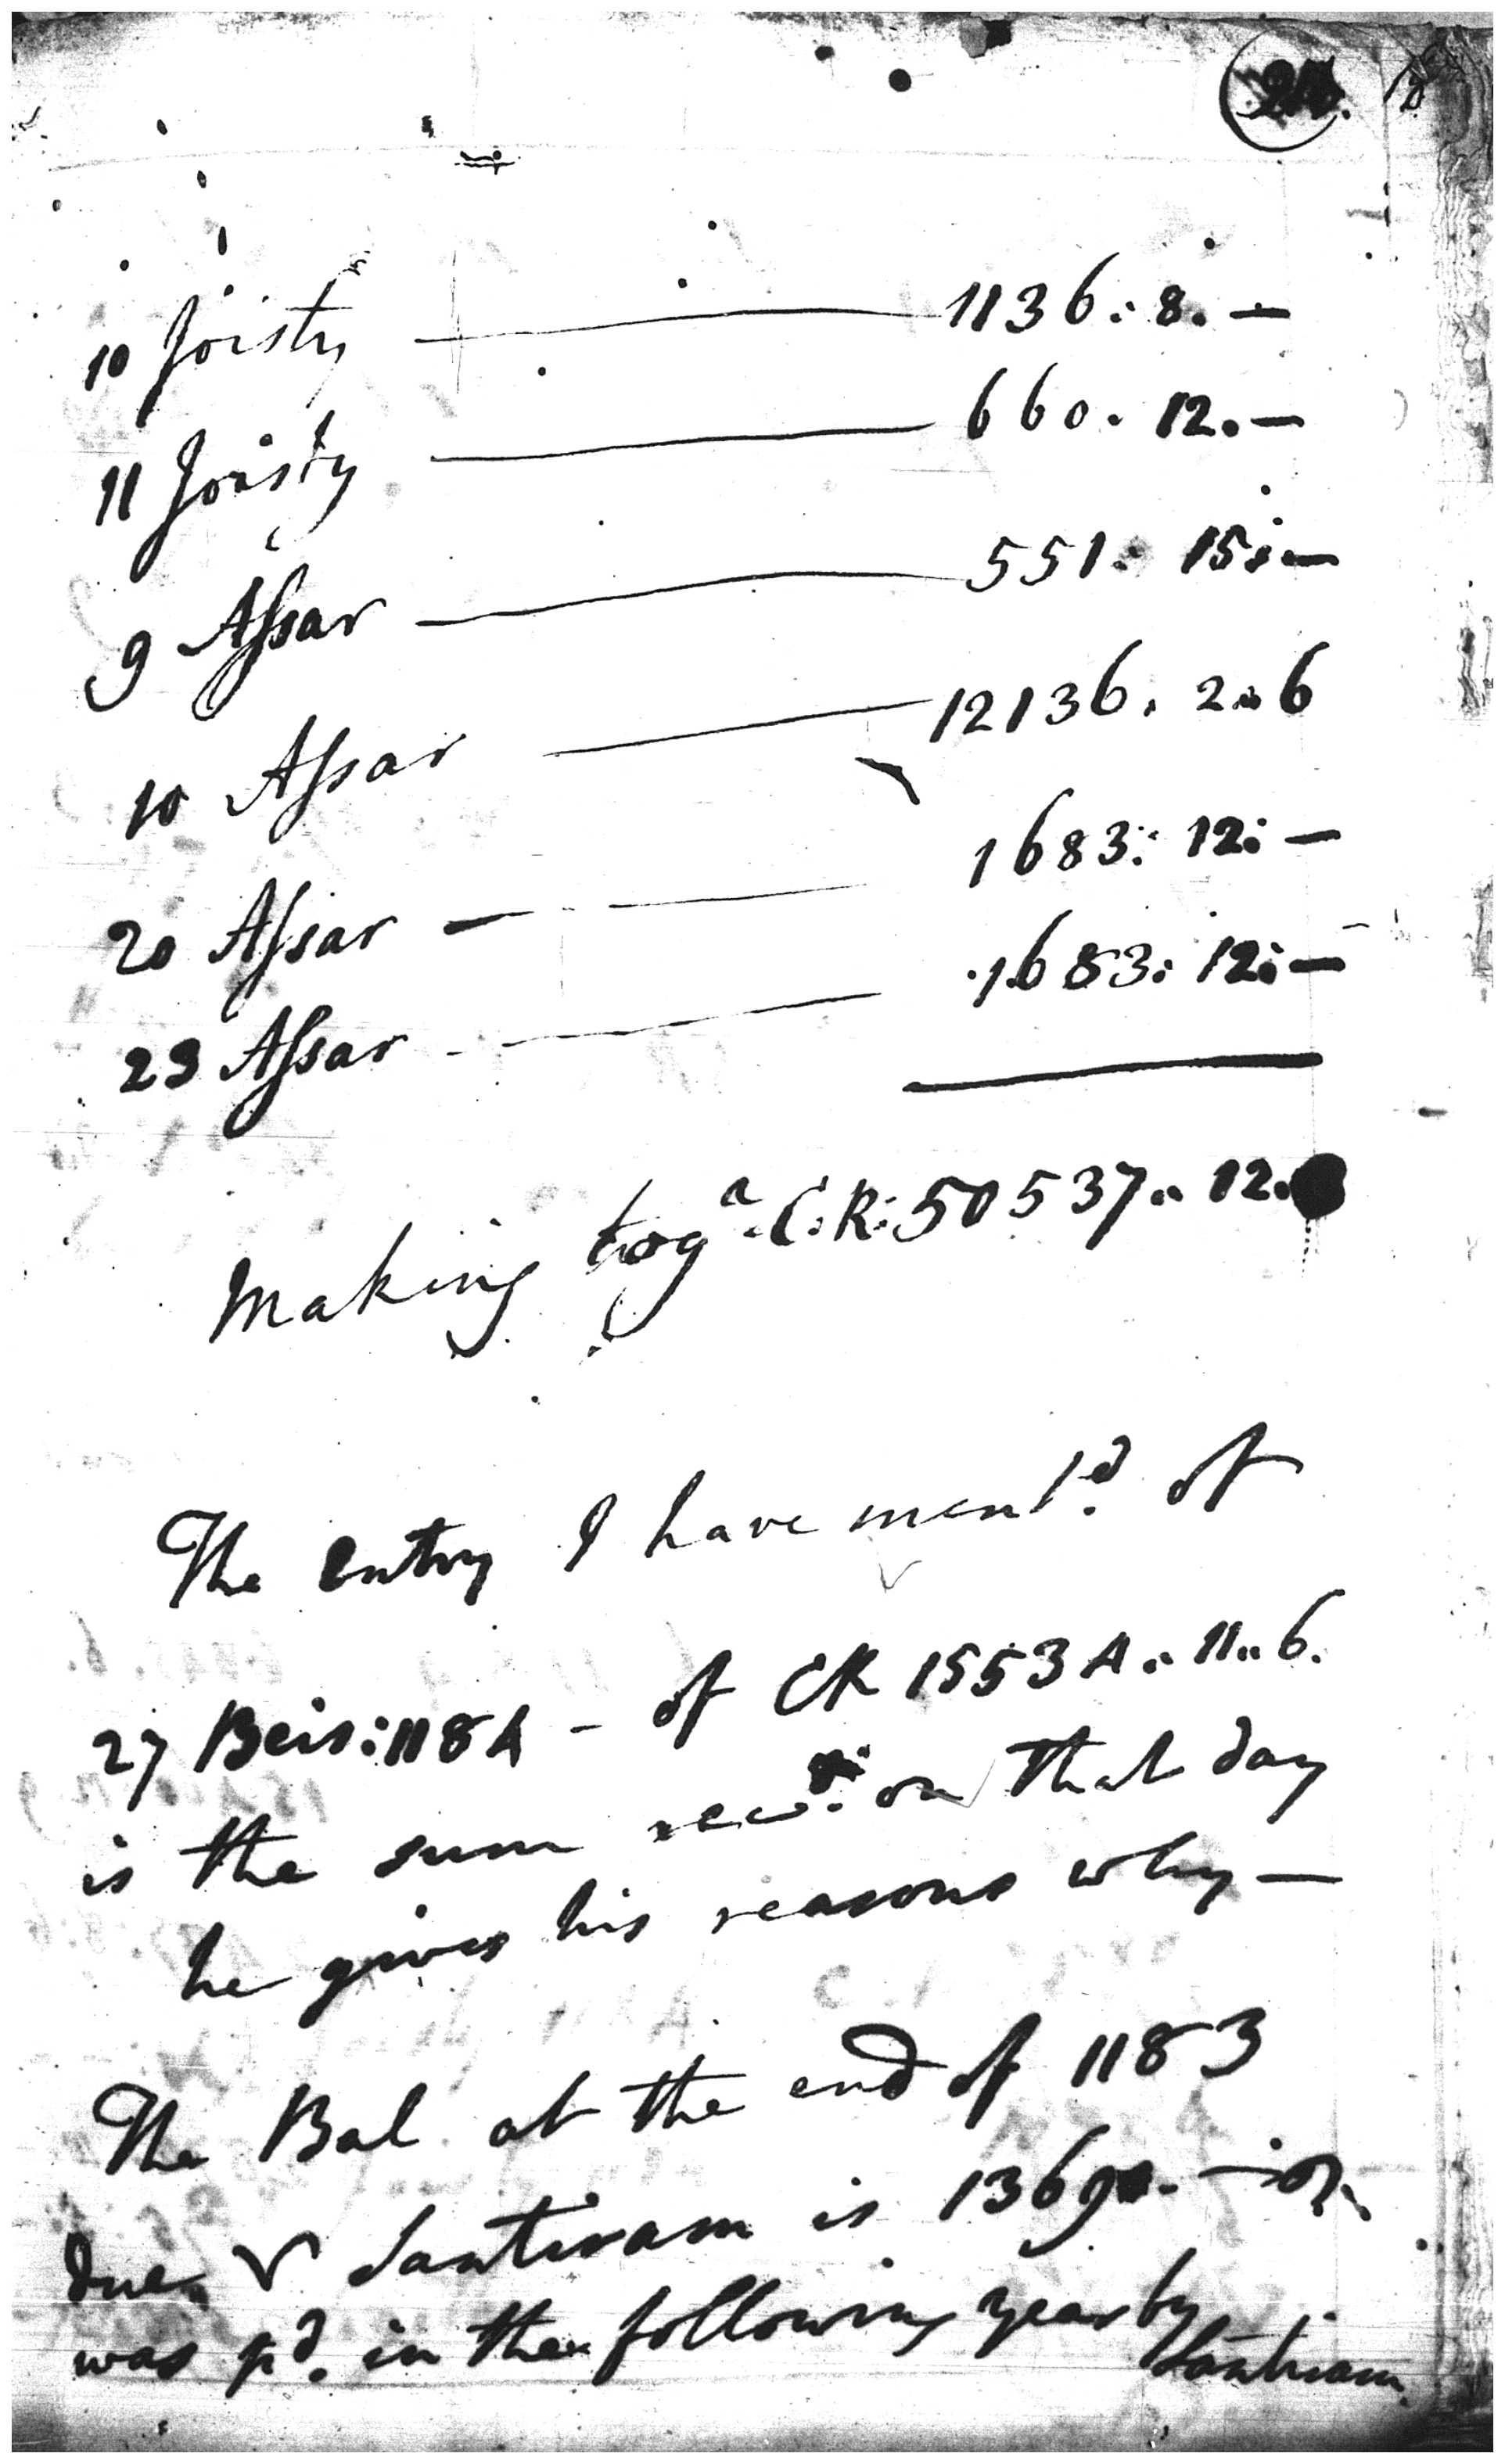 10 Joisty — 1136:8.—
11 Joisty — 660.12.—
9 Assar — 551:15:—
10 Assar — 12136.2.6
20 Assar — 1683:12:—
23 Assar — 1683:12:—
Making togr. C:R:50537..12.
The entry I have mentd. of
27 Beis:1184 - of CR 15534..11..6.
is the sum recd. on that day
he gives his reasons why—
The Bal at the end of 1183
due Santiram is 1369
was pd. in the following year by
Santiram.